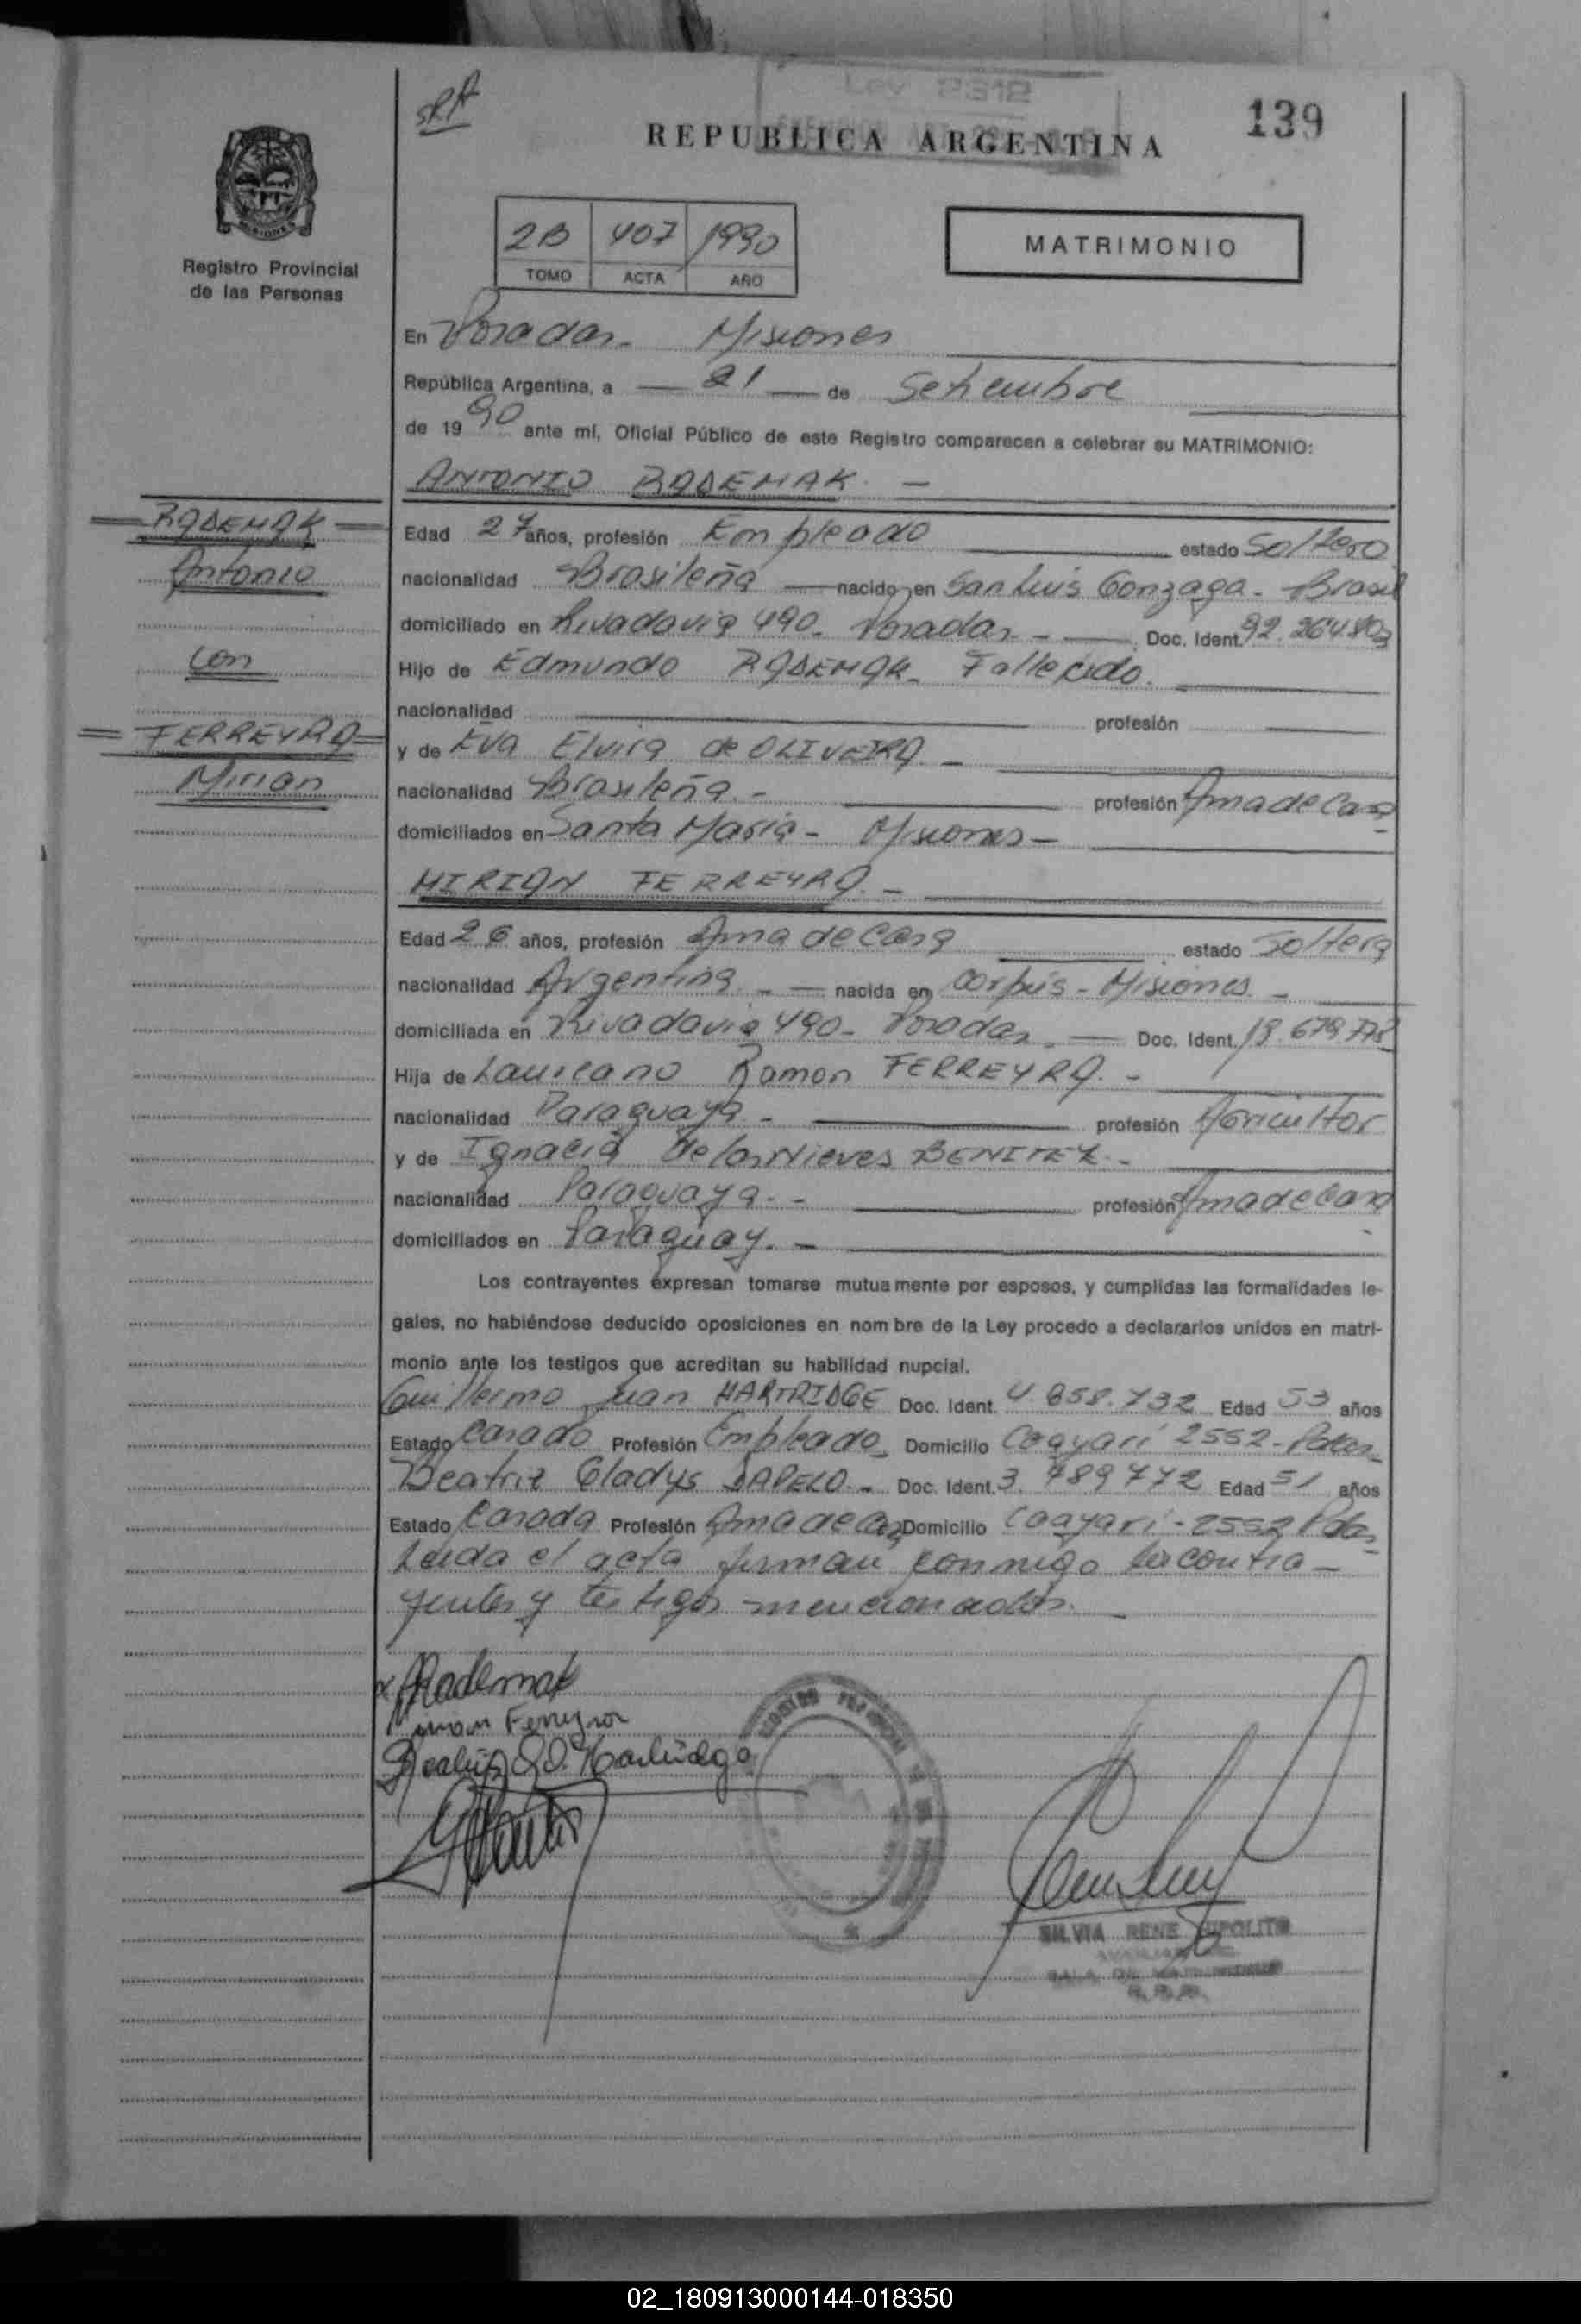 SRA
Ley 2312
139
REPUBLICA ARGENTINA
2B 407 1990
TOMO ACTA AÑO
MATRIMONIO
MISIONES
Registro Provincial
de las Personas
En Posadas - Misiones
República Argentina, a 21 de Setiembre
de 1990 ante mí, Oficial Público de este Registro comparecen a celebrar su MATRIMONIO:
ANTONIO RADEMAK. -
RADEMAK
Antonio
con
FERREYRA
Mirian
Edad 27 años, profesión Empleado estado Soltero
nacionalidad Brasileña nacido en San Luis Gonzaga - Brasil
domiciliado en Rivadavia 490 - Posadas - Doc. Ident. 92.264.803
Hijo de Edmundo RADEMAK - Fallecido.
nacionalidad profesión
y de Eva Elvira de OLIVEIRA. -
nacionalidad Brasileña. - profesión Ama de Casa
domiciliados en Santa María - Misiones -
MIRIAN FERREYRA. -
Edad 26 años, profesión Ama de Casa estado Soltera
nacionalidad Argentina. - nacida en Corpus - Misiones. -
domiciliada en Rivadavia 490 - Posadas. - Doc. Ident. 18.679.778
Hija de Laureano Ramon FERREYRA. -
nacionalidad Paraguaya - profesión Agricultor
y de Ignacia de las Nieves BENITEZ. -
nacionalidad Paraguaya. - profesión Ama de Casa
domiciliados en Paraguay. -
Los contrayentes expresan tomarse mutuamente por esposos, y cumplidas las formalidades le-
gales, no habiéndose deducido oposiciones en nombre de la Ley procedo a declararlos unidos en matri-
monio ante los testigos que acreditan su habilidad nupcial.
Guillermo Juan HARTRIDGE Doc. Ident. 4.858.732 Edad 53 años
Estado Casado Profesión Empleado Domicilio Caayarí 2552 - Pdas
Beatriz Gladys SAPELO - Doc. Ident. 3.789772 Edad 51 años
Estado Casada Profesión Ama de Casa Domicilio Caayarí - 2552 Pdas
Leida el acta firman conmigo los contra-
yentes y testigos mencionados. -
Rademak
Mirian Ferreyra
Beatriz S. de Hartridge
SILVIA RENE HIPOLITO
SALA DE MATRIMONIOS
02_180913000144-018350